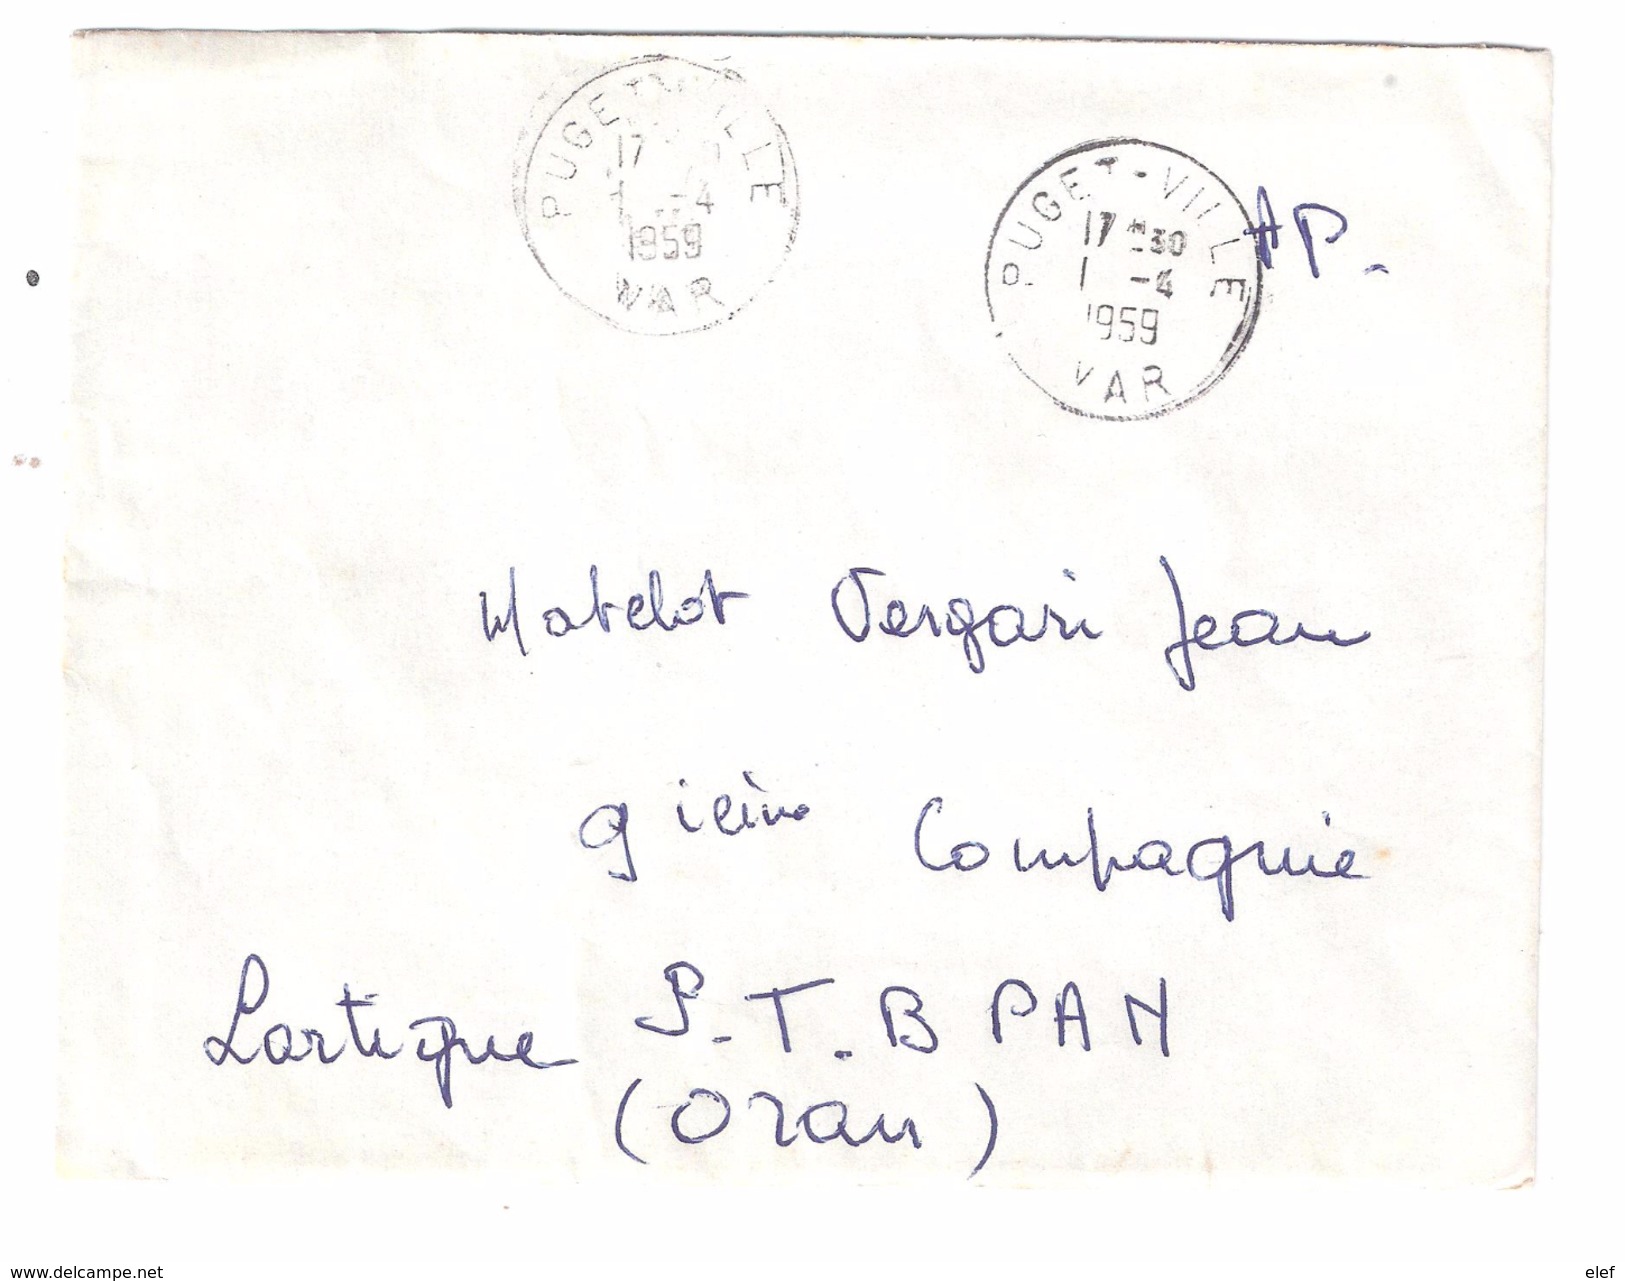 PUGET-VILLE
17
1 -4
1959
VAR
PUGET-VILLE
17 H 30
1 -4
1959
VAR
AP.
Matelot Vergari Jean
9ième Compagnie
Lartigue S.T.B PAN
(Oran)
www.delcampe.net
elef